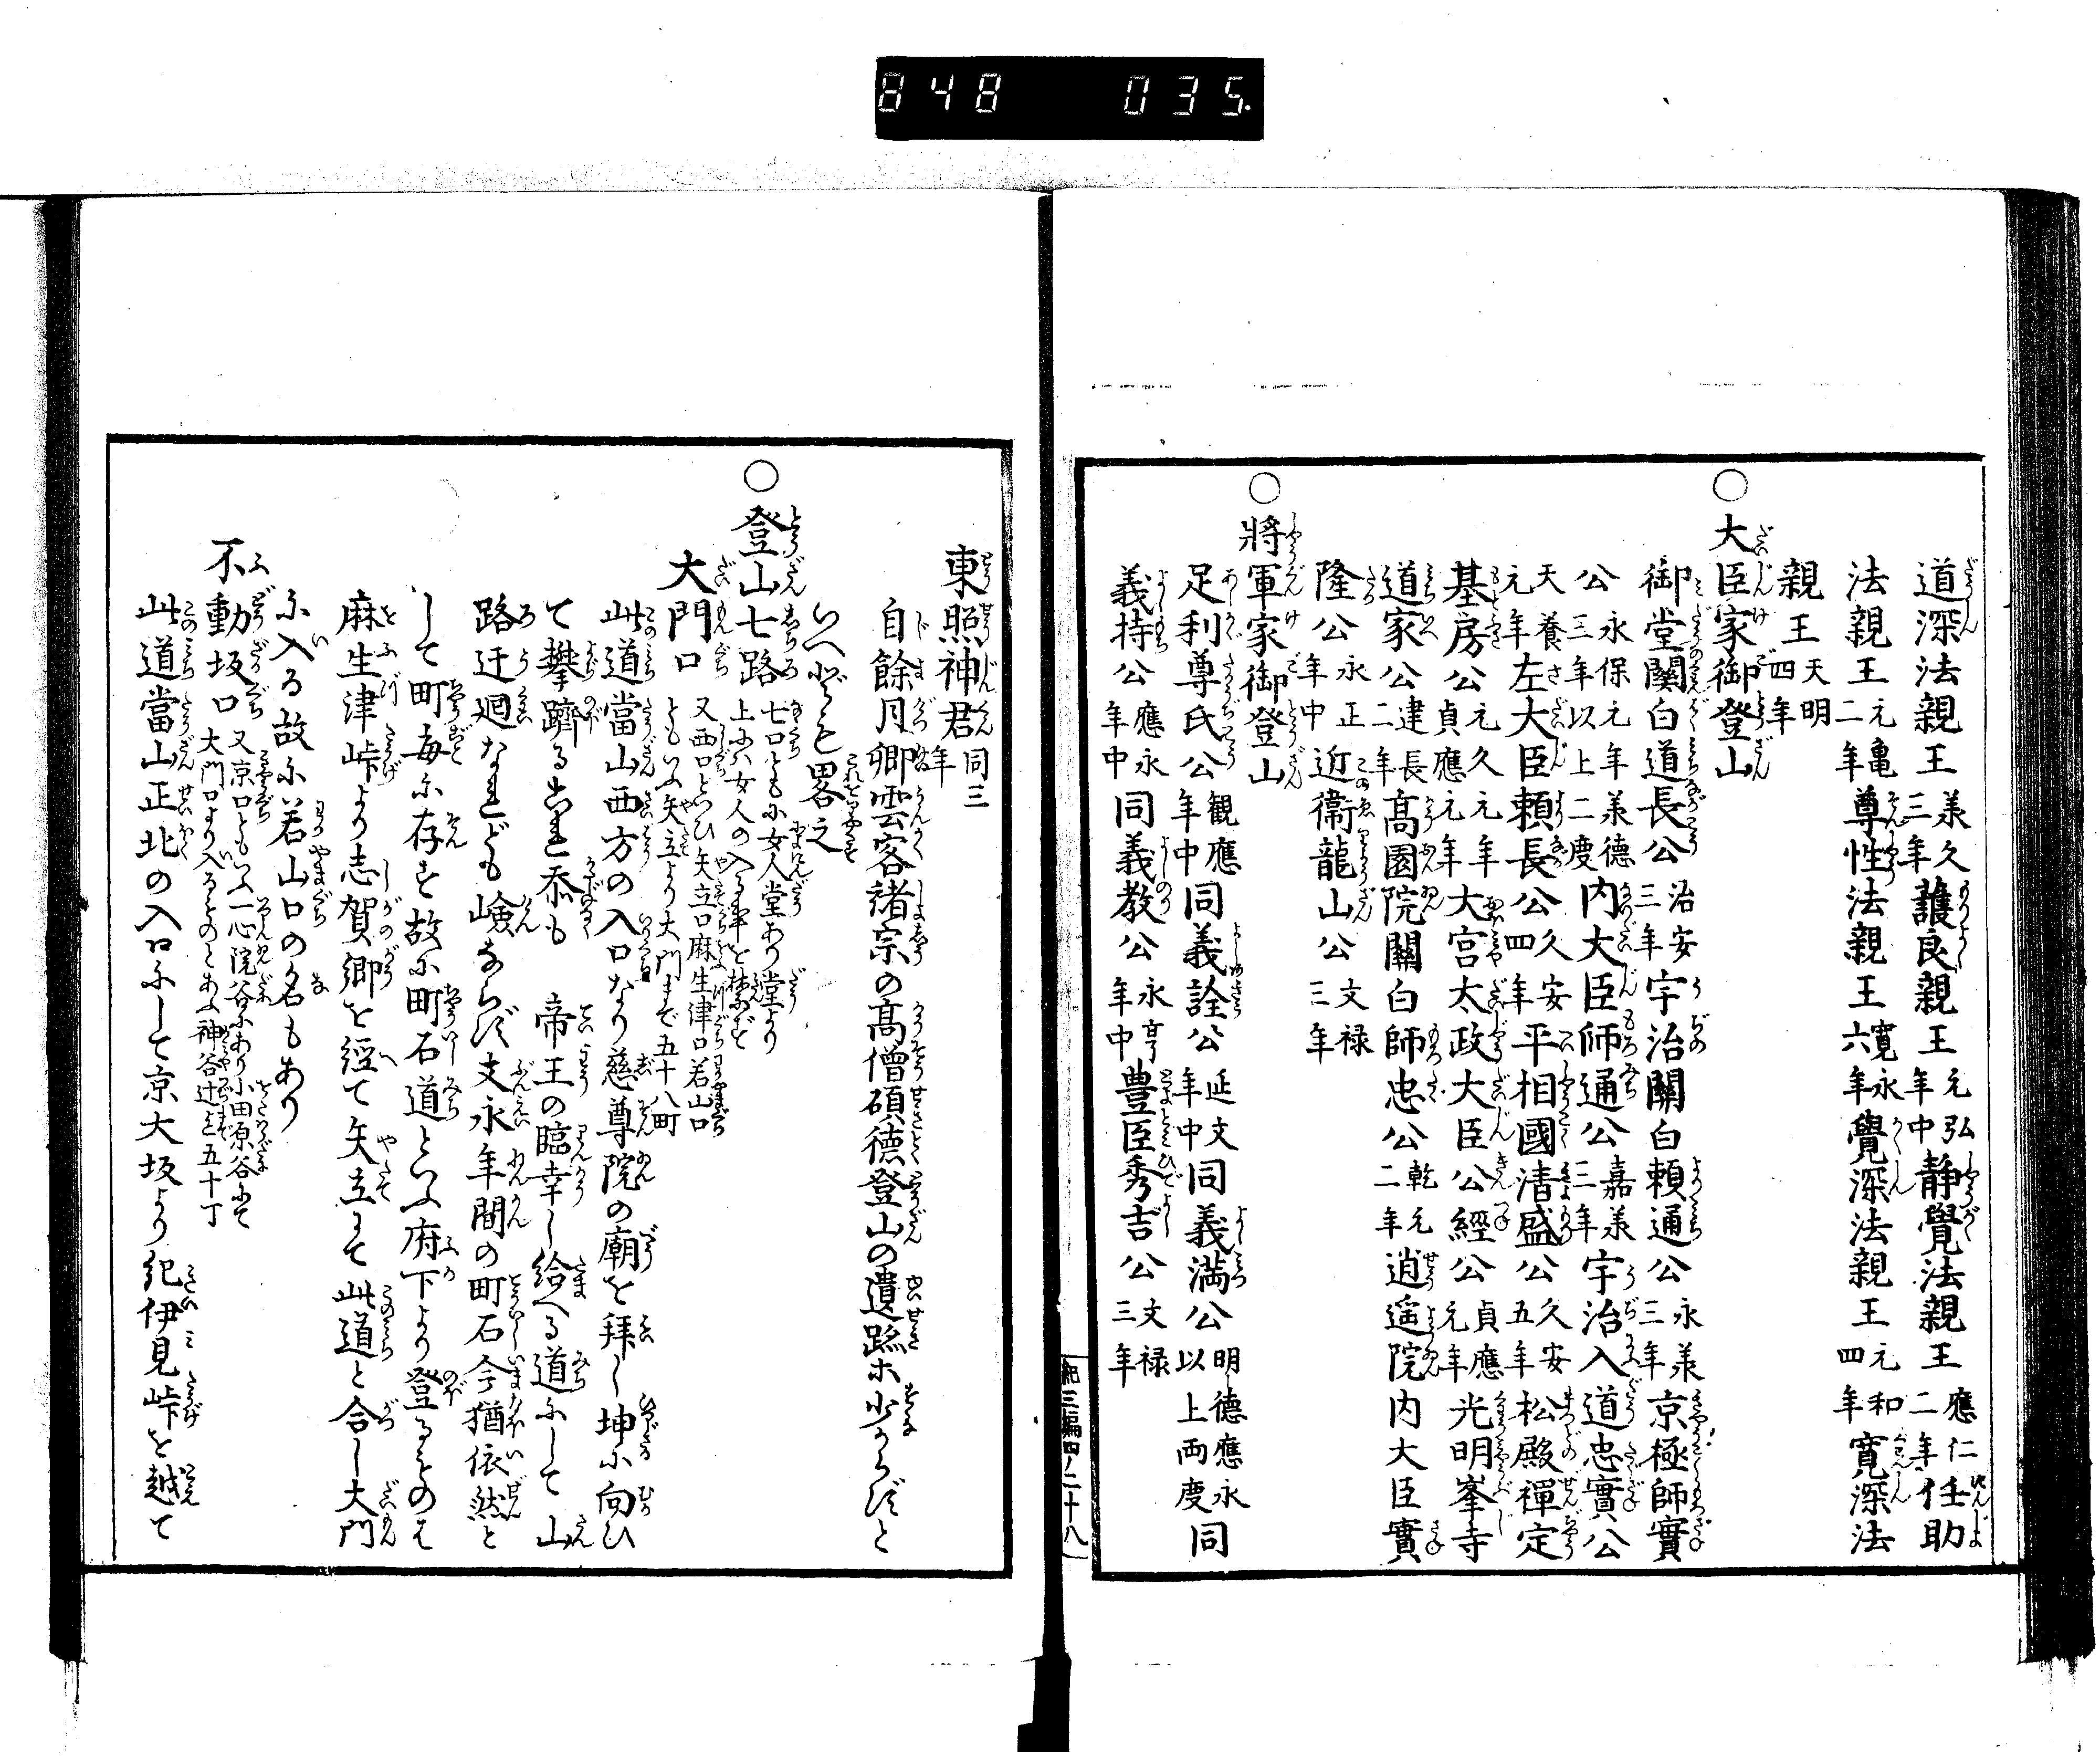 848 035.
道深法親王承久三年護良親王元弘年中静覺法親王應仁二年任助
法親王元亀二年尊性法親王寛永六年覺深法親王元和四年寛深法
親王天明四年
○大臣家御登山
御堂關白道長公治安三年宇治關白頼通公永承三年京極師實
公永保元年承德三年以上二度内大臣師通公嘉承三年宇治入道忠實公
天養元年左大臣頼長公久安四年平相國清盛公久安五年松殿禪定
基房公元久元年貞應元年大宮太政大臣公經公貞應元年光明峯寺
道家公建長二年髙園院關白師忠公乾元二年逍遥院内大臣實
隆公永正年中近衞龍山公文禄三年
○將軍家御登山
足利尊氏公観應年中同義詮公延文年中同義満公明德應永以上両度同
義持公應永年中同義教公永享年中豊臣秀吉公文禄三年
紀三編四ノ二十八
東照神君同三年
自餘月卿雲客諸宗の髙僧碩德登山の遺跡ホ少からずと
いへども畧之
○登山七路七口ともに女人堂あり堂より上ハ女人の入る事を禁ず
大門口又西口といひ矢立口麻生津口若山口ともいふ矢立より大門まで五十八町
此道當山西方の入口なり慈尊院の廟を拜し坤に向ひ
て攀躋る也是忝も 帝王の臨幸し給へる道にして山
路迂廻なれども嶮ならず文永年間の町石今猶依然と
して町毎に存す故に町石道といふ府下より登るものは
麻生津峠より志賀郷を經て矢立にて此道と合し大門
に入る故に若山口の名もあり
不動坂口又京口ともいふ一心院谷にあり小田原谷にて大門口より入るものとあふ神谷辻迄五十丁
此道當山正北の入口にして京大坂より紀伊見峠を越て